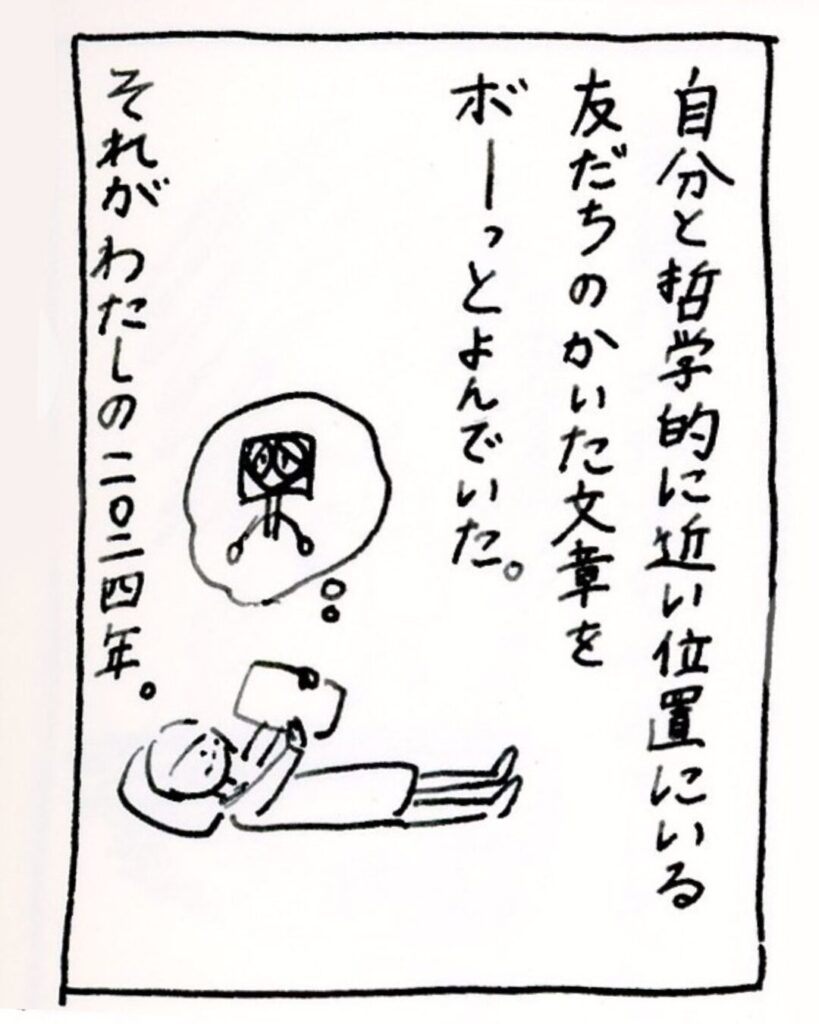 自分と哲学的に近い位置にいる
友だちのかいた文章を
ボーっとよんでいた。
それがわたしの二〇二四年。